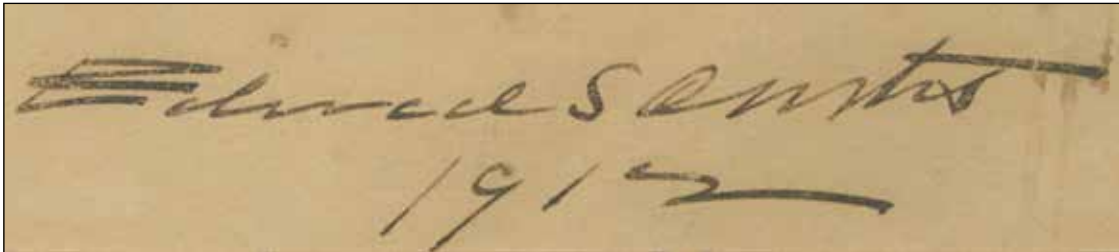 Edward S Curtis
1912